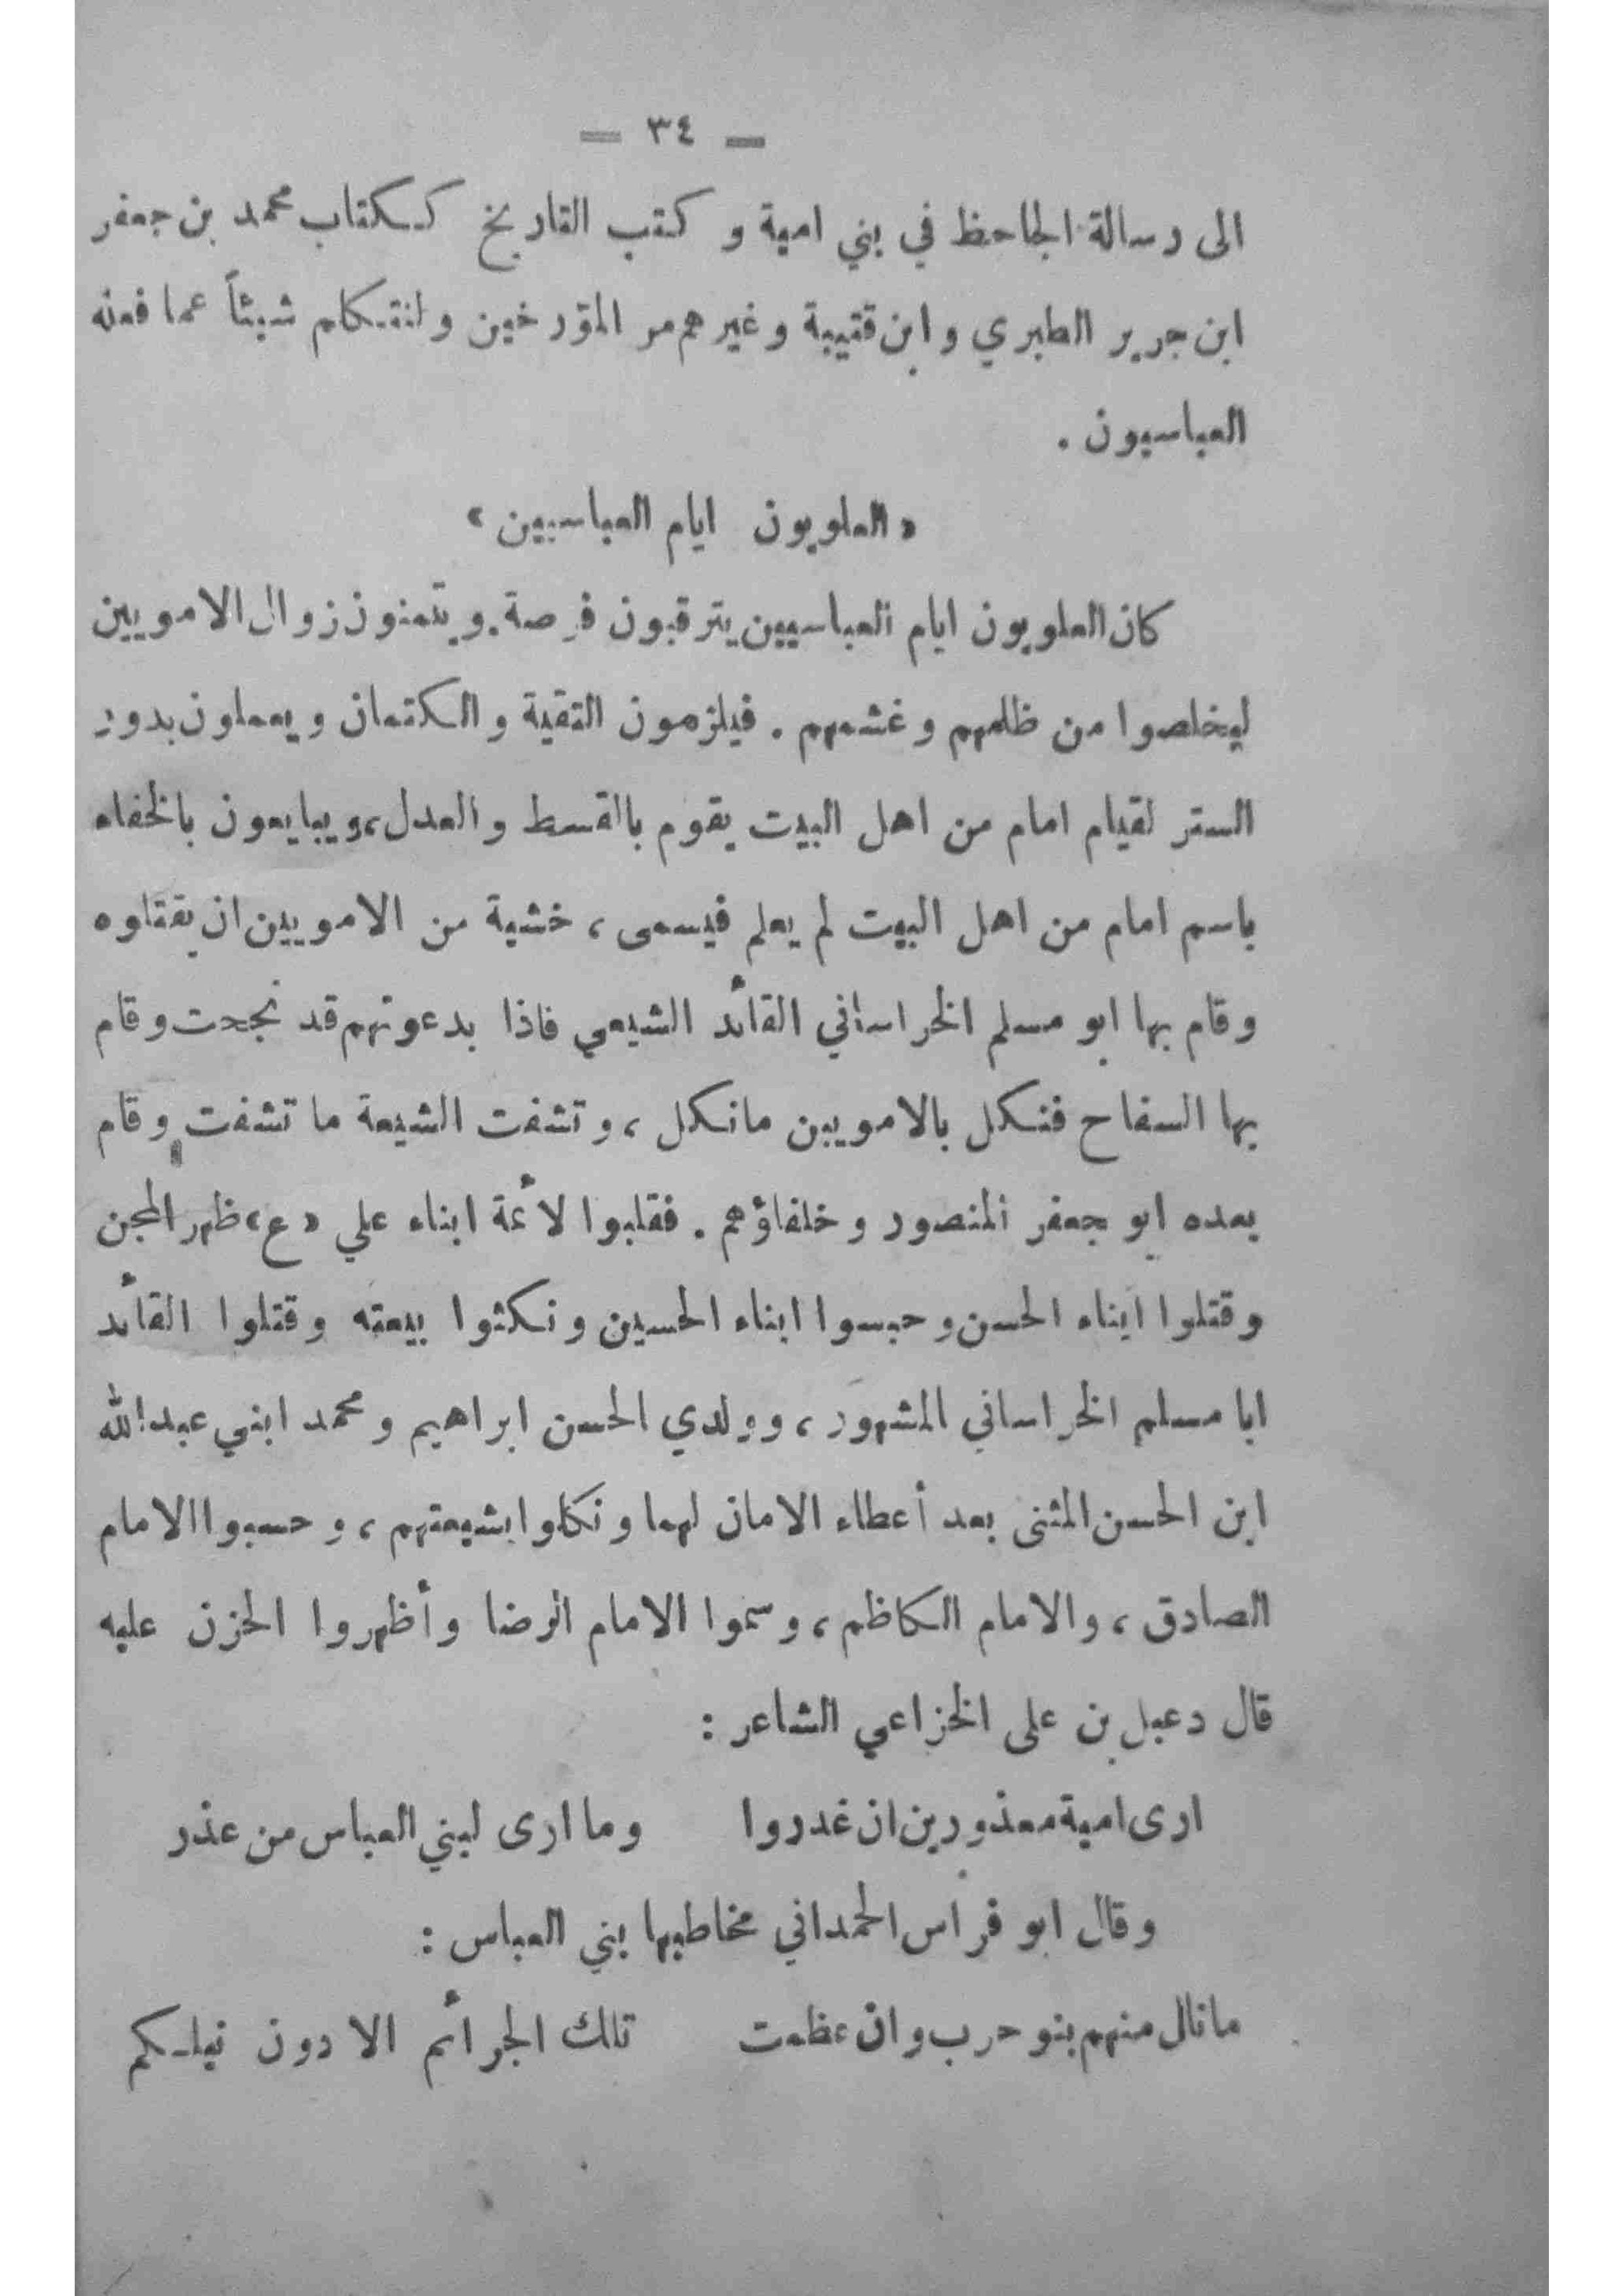 — ٣٤ —
الى رسالة الجاحظ في بني امية و كتب التاريخ كـكتاب محمد بن جعفر
ابن جرير الطبري وابن قتيبة وغيرهم من المؤرخين ولنتكلم شيئاً عما فعله
العباسيون .
« العلويون ايام العباسيين »
كان العلويون ايام العباسيين يترقبون فرصة. ويتمنون زوال الامويين
ليخلصوا من ظلمهم وغشمهم . فيلزمون التقية والكتمان ويعملون بدور
الستر لقيام امام من اهل البيت يقوم بالقسط والعدل، ويبايعون بالخفاء
باسم امام من اهل البيت لم يعلم فيسمى ، خشية من الامويين ان يقتلوه
وقام بها ابو مسلم الخراساني القائد الشيعي فاذا بدعوتهم قد نجحت وقام
بها السفاح فنكل بالامويين مانكل ، وتشفت الشيعة ما تشفت وقام
بعده ابو جعفر المنصور وخلفاؤهم . فقلبوا لأئمة ابناء علي «ع» ظهر المجن
وقتلوا ابناء الحسن وحبسوا ابناء الحسين ونكثوا بيعته وقتلوا القائد
ابا مسلم الخراساني المشهور ، وولدي الحسن ابراهيم ومحمد ابني عبدالله
ابن الحسن المثنى بعد أعطاء الامان لهما ونكلوا بشيعتهم ، وحسبوا الامام
الصادق ، والامام الكاظم ، وسموا الامام الرضا وأظهروا الحزن عليه
قال دعبل بن على الخزاعي الشاعر :
ارى امية معذورين ان غدروا وما ارى لبني العباس من عذر
وقال ابو فراس الحمداني مخاطبها بني العباس :
مانال منهم بنو حرب وان عظمت تلك الجرائم الا دون نيلـكم